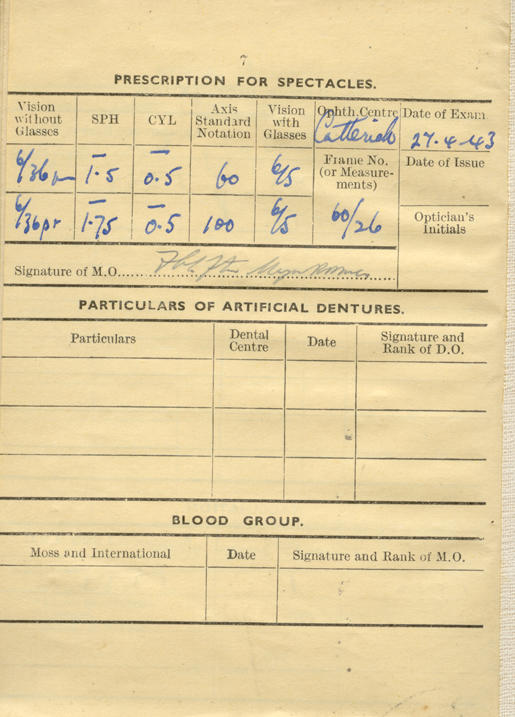 7
PRESCRIPTION FOR SPECTACLES.
Vision without Glasses SPH CYL Axis Standard Notation Vision with Glasses Ophth. Centre Date of Exam.
Catterick 27-4-43
6/36 – 1·5 – 0.5 60 6/5 Frame No. (or Measurements) Date of Issue
6/36 pr 1·75 0.5 100 6/5 60/26 Optician's Initials
Signature of M.O. Major
PARTICULARS OF ARTIFICIAL DENTURES.
Particulars Dental Centre Date Signature and Rank of D.O.
BLOOD GROUP.
Moss and International Date Signature and Rank of M.O.